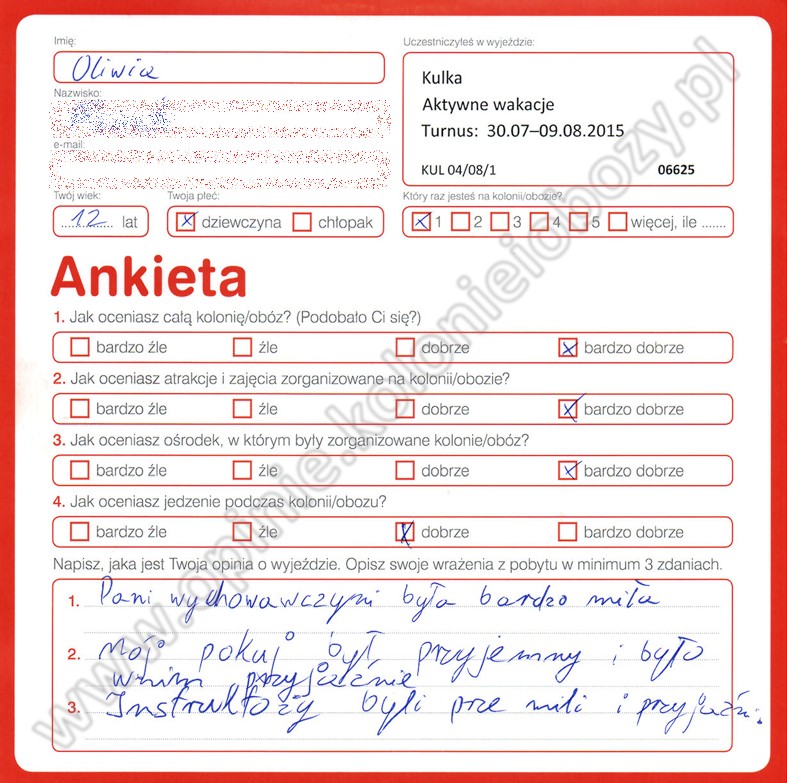 Imię:
Oliwia
Nazwisko:
e-mail:
Twój wiek:
12 lat
Twoja płeć:
dziewczyna chłopak
Uczestniczyłeś w wyjeździe:
Kulka
Aktywne wakacje
Turnus: 30.07–09.08.2015
KUL 04/08/1 06625
Który raz jesteś na kolonii/obozie?
1 2 3 4 5 więcej, ile .......
Ankieta
1. Jak oceniasz całą kolonię/obóz? (Podobało Ci się?)
bardzo źle źle dobrze bardzo dobrze
2. Jak oceniasz atrakcje i zajęcia zorganizowane na kolonii/obozie?
bardzo źle źle dobrze bardzo dobrze
3. Jak oceniasz ośrodek, w którym były zorganizowane kolonie/obóz?
bardzo źle źle dobrze bardzo dobrze
4. Jak oceniasz jedzenie podczas kolonii/obozu?
bardzo źle źle dobrze bardzo dobrze
Napisz, jaka jest Twoja opinia o wyjeździe. Opisz swoje wrażenia z pobytu w minimum 3 zdaniach.
1. Pani wychowawczyni była bardzo miła
2. Mój pokuj był przyjemny i było
wnim przyjaźnie
3. Instruktoży byli prze mili i przyjaźni.
www.opinie.kolonieiobozy.pl